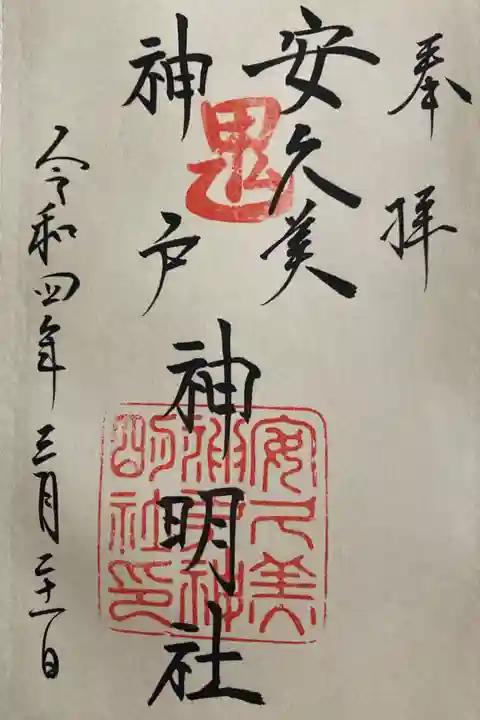 奉拝
安久美
神戸
神明社
鬼
安久美神戸神明社印
令和四年三月二十一日